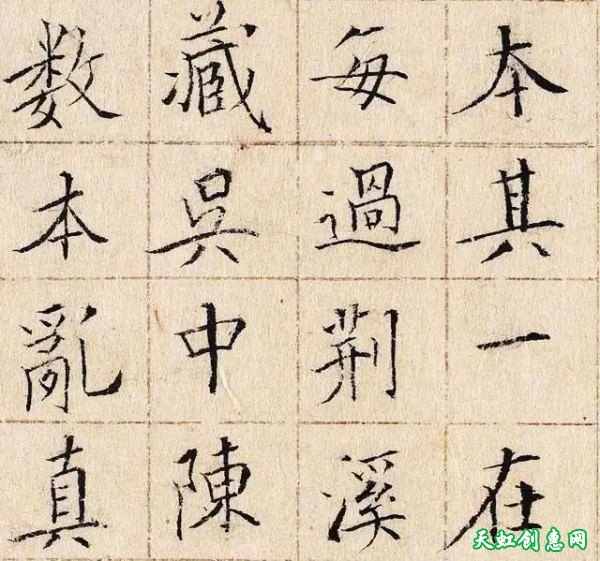 本其一在
每過荆溪
藏吳中陳
数本亂真
天虹创惠网